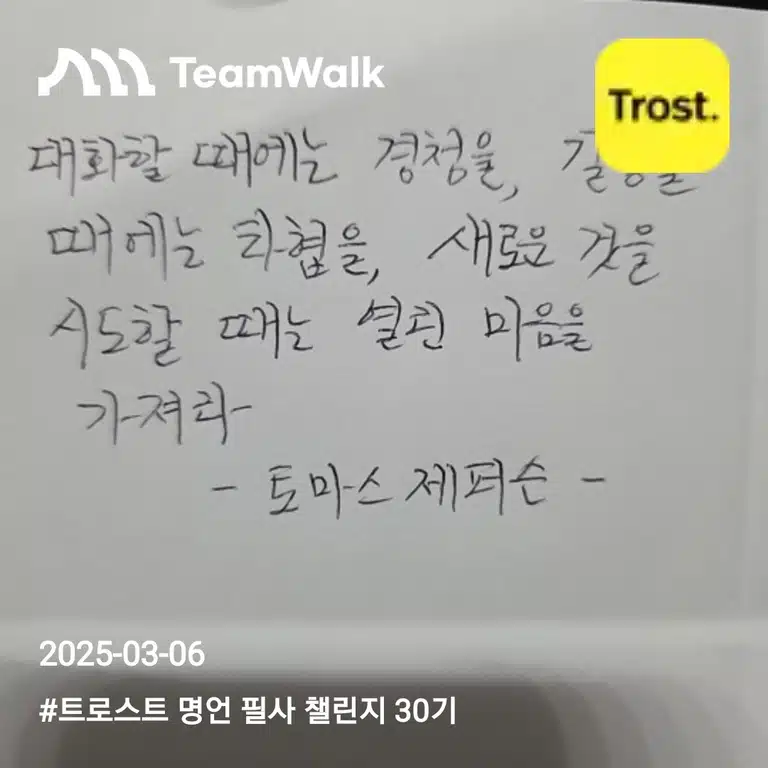 TeamWalk
Trost.
대화할 때에는 경청을,
때에는 타협을, 새로운 것을
시도할 때는 열린 마음을
가져라
- 토마스 제퍼슨 -
2025-03-06
#트로스트 명언 필사 챌린지 30기